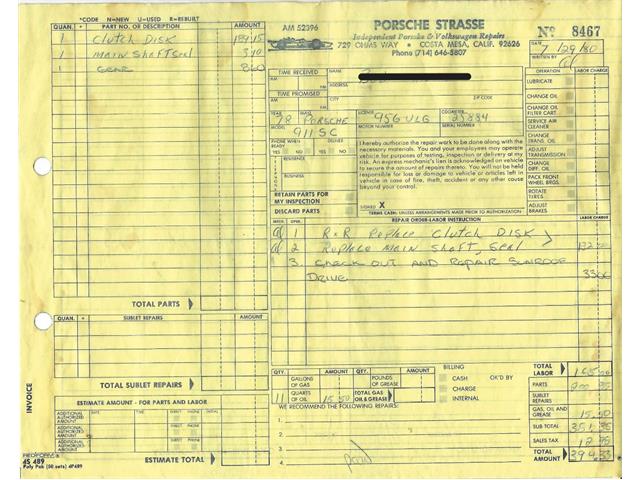 *CODE N=NEW U=USED R=REBUILT
QUAN. * PART NO. OR DESCRIPTION AMOUNT
1 Clutch Disk
1 Main Shaft Seal
1 Gear 860
TOTAL PARTS
QUAN. * SUBLET REPAIRS AMOUNT
TOTAL SUBLET REPAIRS
ESTIMATE AMOUNT - FOR PARTS AND LABOR
ADDITIONAL AUTHORIZED AMOUNT DATE TIME DIRECT PHONE DIRECT PHONE
ADDITIONAL AUTHORIZED AMOUNT DATE TIME DIRECT PHONE DIRECT PHONE
ESTIMATE TOTAL
INVOICE
REDIFORM®
4S 489
Poly Pak (50 sets) 4P489
AM 52396
PORSCHE STRASSE
Independent Porsche & Volkswagen Repairs
729 OHMS WAY • COSTA MESA, CALIF. 92626
Phone (714) 646-5807
No 8467
DATE 7/29/80
WRITTEN BY
TIME RECEIVED AM PM
NAME
TIME PROMISED AM PM
ZIP CODE
YEAR 78 MAKE PORSCHE LICENSE 956 ULG ODOMETER 25884
MODEL 911 SC MOTOR NUMBER SERIAL NUMBER
PHONE READY YES NO DELIVER YES NO
RESIDENCE
BUSINESS
RETAIN PARTS FOR MY INSPECTION
DISCARD PARTS
I hereby authorize the repair work to be done along with the
necessary materials. You and your employees may operate
vehicle for purposes of testing, inspection or delivery at my
risk. An express mechanic's lien is acknowledged on vehicle
to secure the amount of repairs thereto. You will not be held
responsible for loss or damage to vehicle or articles left in
vehicle in case of fire, theft, accident or any other cause
beyond your control.
SIGNED X
TERMS CASH: UNLESS ARRANGEMENTS MADE PRIOR TO AUTHORIZATION
OPERATION LABOR CHARGE
LUBRICATE
CHANGE OIL
CHANGE OIL FILTER CART.
SERVICE AIR CLEANER
CHANGE TRANS. OIL
ADJUST TRANSMISSION
CHANGE DIFF. OIL
PACK FRONT WHEEL BRGS.
ROTATE TIRES
ADJUST BRAKES
MECH. OPER. REPAIR ORDER-LABOR INSTRUCTION LABOR CHARGE
1 R+R Replace Clutch Disk
2 Replace Main Shaft Seal 132
3. Check out and Repair Sunroof
Drive 3300
QTY. AMOUNT QTY. AMOUNT
GALLONS OF GAS POUNDS OF GREASE
11 QUARTS OF OIL 15.50 TOTAL GAS OIL & GREASE
BILLING
CASH OK'D BY
CHARGE
INTERNAL
WE RECOMMEND THE FOLLOWING REPAIRS:
1
2
3
4
paid
TOTAL LABOR 165
PARTS
SUBLET REPAIRS
GAS, OIL AND GREASE 15.50
SUB TOTAL
SALES TAX
TOTAL AMOUNT 394.33